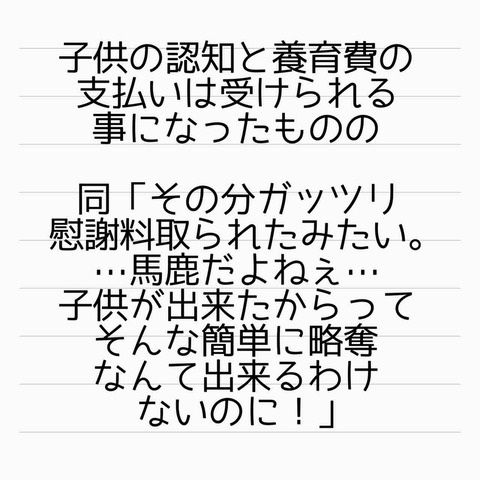 子供の認知と養育費の
支払いは受けられる
事になったものの
同「その分ガッツリ
慰謝料取られたみたい。
…馬鹿だよねぇ…
子供が出来たからって
そんな簡単に略奪
なんて出来るわけ
ないのに！」